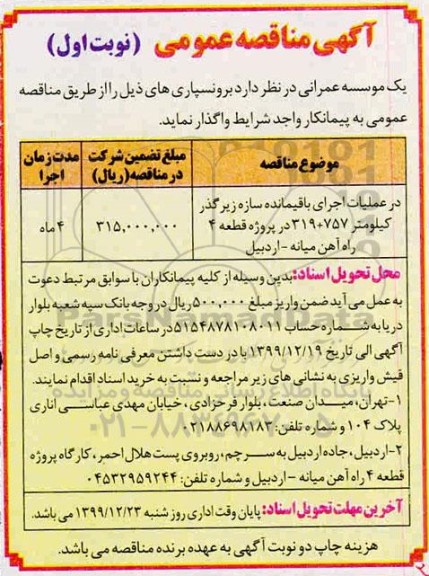 آگهی مناقصه عمومی (نوبت اول)
یک موسسه عمرانی در نظر دارد برونسپاری های ذیل را از طریق مناقصه
عمومی به پیمانکار واجد شرایط واگذار نماید.
موضوع مناقصه
مبلغ تضمین شرکت
در مناقصه(ریال)
مدت زمان
اجرا
در عملیات اجرای باقیمانده سازه زیرگذر
کیلومتر ۷۵۷+۳۱۹ در پروژه قطعه ۴
راه آهن میانه - اردبیل
۳۱۵,۰۰۰,۰۰۰
۴ ماه
محل تحویل اسناد: بدین وسیله از کلیه پیمانکاران با سوابق مرتبط دعوت
به عمل می آید ضمن واریز مبلغ ۵۰۰,۰۰۰ ریال در وجه بانک سپه شعبه بلوار
دریا به شماره حساب ۵۱۵۴۸۷۸۱۰۸۰۱۱ در ساعات اداری از تاریخ چاپ
آگهی الی تاریخ ۱۳۹۹/۱۲/۱۹ با در دست داشتن معرفی نامه رسمی و اصل
فیش واریزی به نشانی های زیر مراجعه و نسبت به خرید اسناد اقدام نمایند.
۱-تهران، میدان صنعت، بلوار فرحزادی، خیابان مهدی عباسی اناری
پلاک ۱۰۴ و شماره تلفن: ۰۲۱۸۸۶۹۸۱۸۳
۲-اردبیل، جاده اردبیل به سرچم، روبروی پست هلال احمر، کارگاه پروژه
قطعه ۴ راه آهن میانه - اردبیل و شماره تلفن: ۰۴۵۳۲۹۵۹۲۴۴
آخرین مهلت تحویل اسناد: پایان وقت اداری روز شنبه ۱۳۹۹/۱۲/۲۳ می باشد.
هزینه چاپ دو نوبت آگهی به عهده برنده مناقصه می باشد.